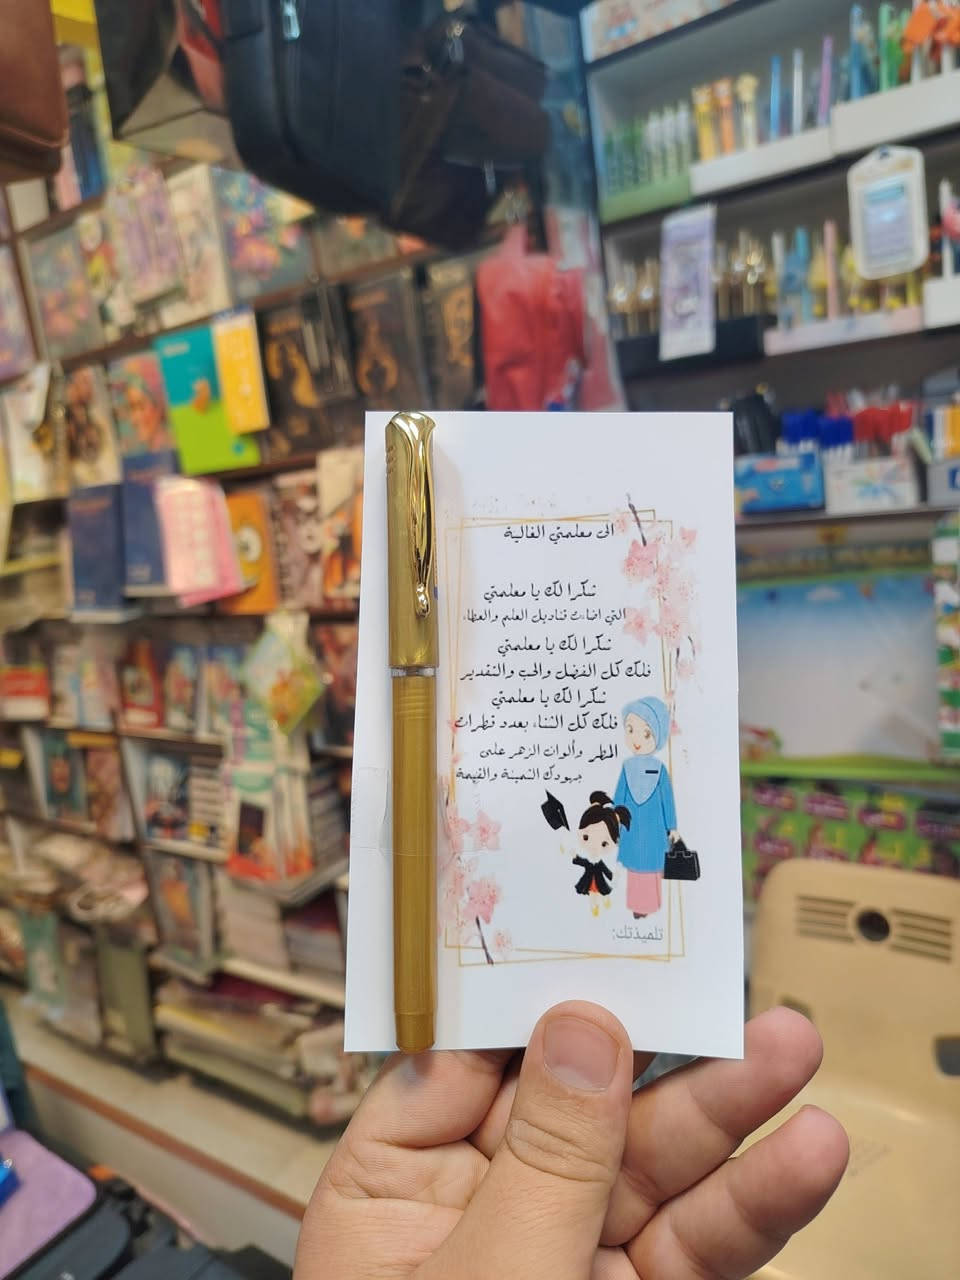 الى معلمتي الغالية
شكرا لك يا معلمتي
التي اضاءت قناديل العلم والعطاء
شكرا لك يا معلمتي
فلك كل الفضل والحب والتقدير
شكرا لك يا معلمتي
فلك كل الثناء بعدد قطرات
المطر وألوان الزهر على
جهودك الثمينة والقيمة
تلميذتك: